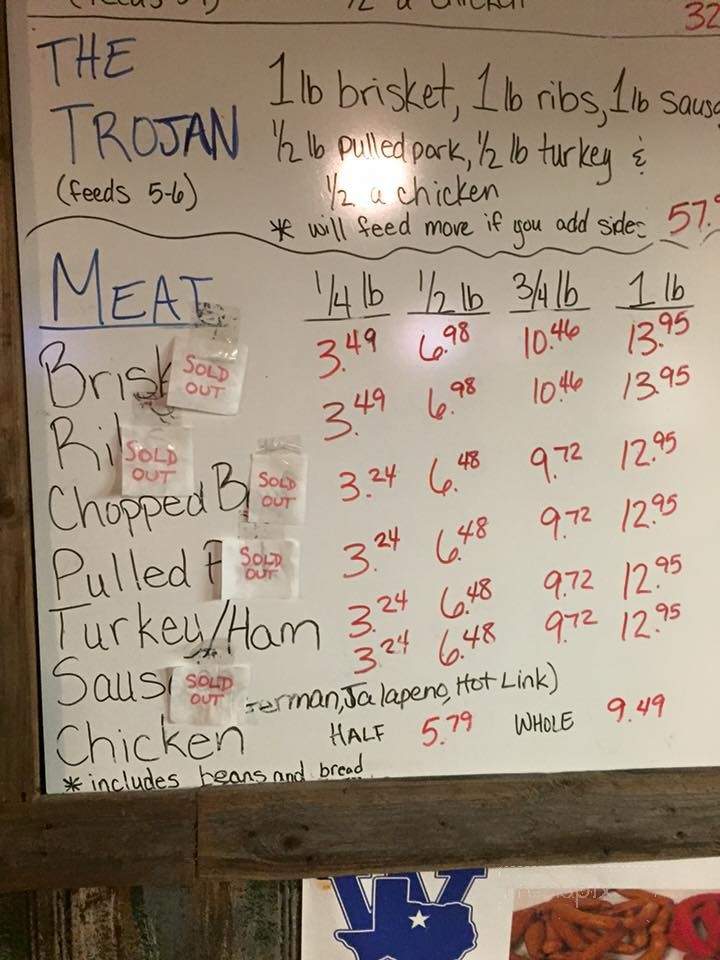 1/2 a chicken 32
THE
TROJAN
(feeds 5-6)
1 lb brisket, 1 lb ribs, 1 lb
1/2 lb pulled park, 1/2 lb turkey &
1/2 a chicken
* will feed more if you add sides 57.
MEAT 1/4 lb 1/2 lb 3/4 lb 1 lb
SOLD OUT 3.49 6.98 10.46 13.95
SOLD OUT 3.49 6.98 10.46 13.95
Chopped B SOLD OUT 3.24 6.48 9.72 12.95
Pulled SOLD OUT 3.24 6.48 9.72 12.95
Turkey/Ham 3.24 6.48 9.72 12.95
SOLD OUT 3.24 6.48 9.72 12.95
German, Jalapeno, Hot Link)
Chicken HALF 5.79 WHOLE 9.49
* includes beans and bread
W